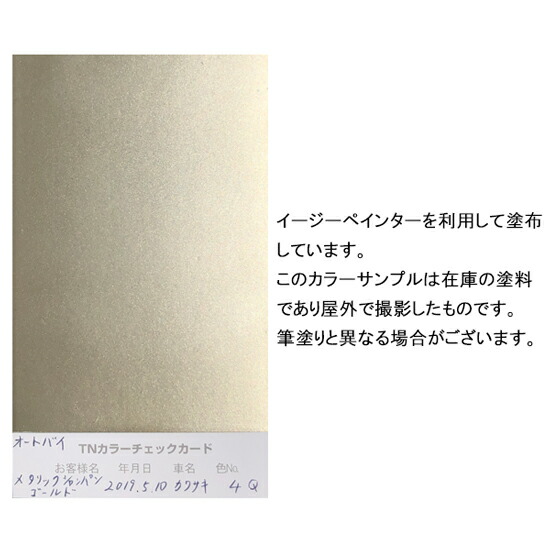 イージーペインターを利用して塗布
しています。
このカラーサンプルは在庫の塗料
であり屋外で撮影したものです。
筆塗りと異なる場合がございます。
オートバイ
TNカラーチェックカード
お客様名 年月日 車名 色No.
メタリックシャンパン
ゴールド 2019.5.10 カワサキ 4Q